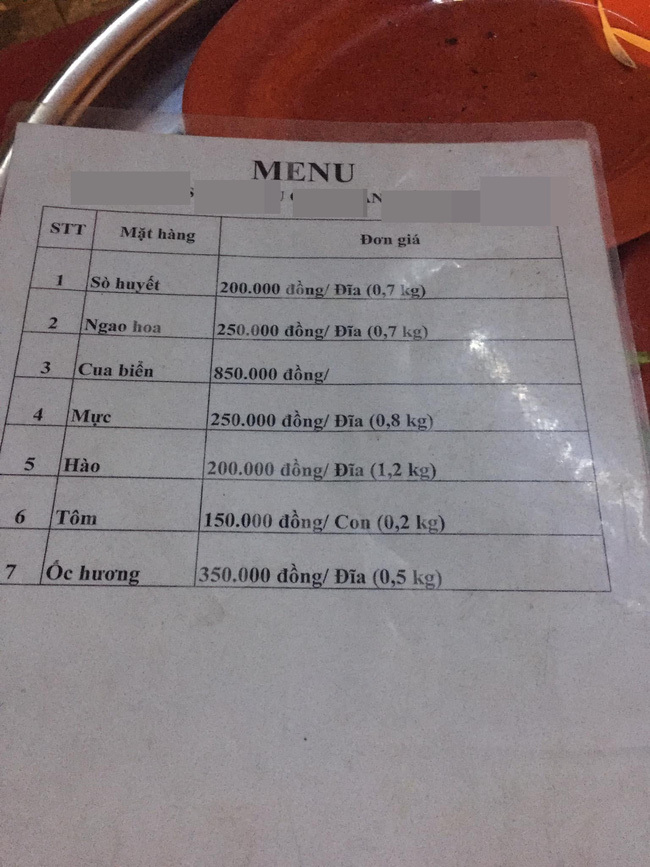 MENU
STT Mặt hàng Đơn giá
1 Sò huyết 200.000 đồng/ Đĩa (0,7 kg)
2 Ngao hoa 250.000 đồng/ Đĩa (0,7 kg)
3 Cua biển 850.000 đồng/
4 Mực 250.000 đồng/ Đĩa (0,8 kg)
5 Hào 200.000 đồng/ Đĩa (1,2 kg)
6 Tôm 150.000 đồng/ Con (0,2 kg)
7 Ốc hương 350.000 đồng/ Đĩa (0,5 kg)